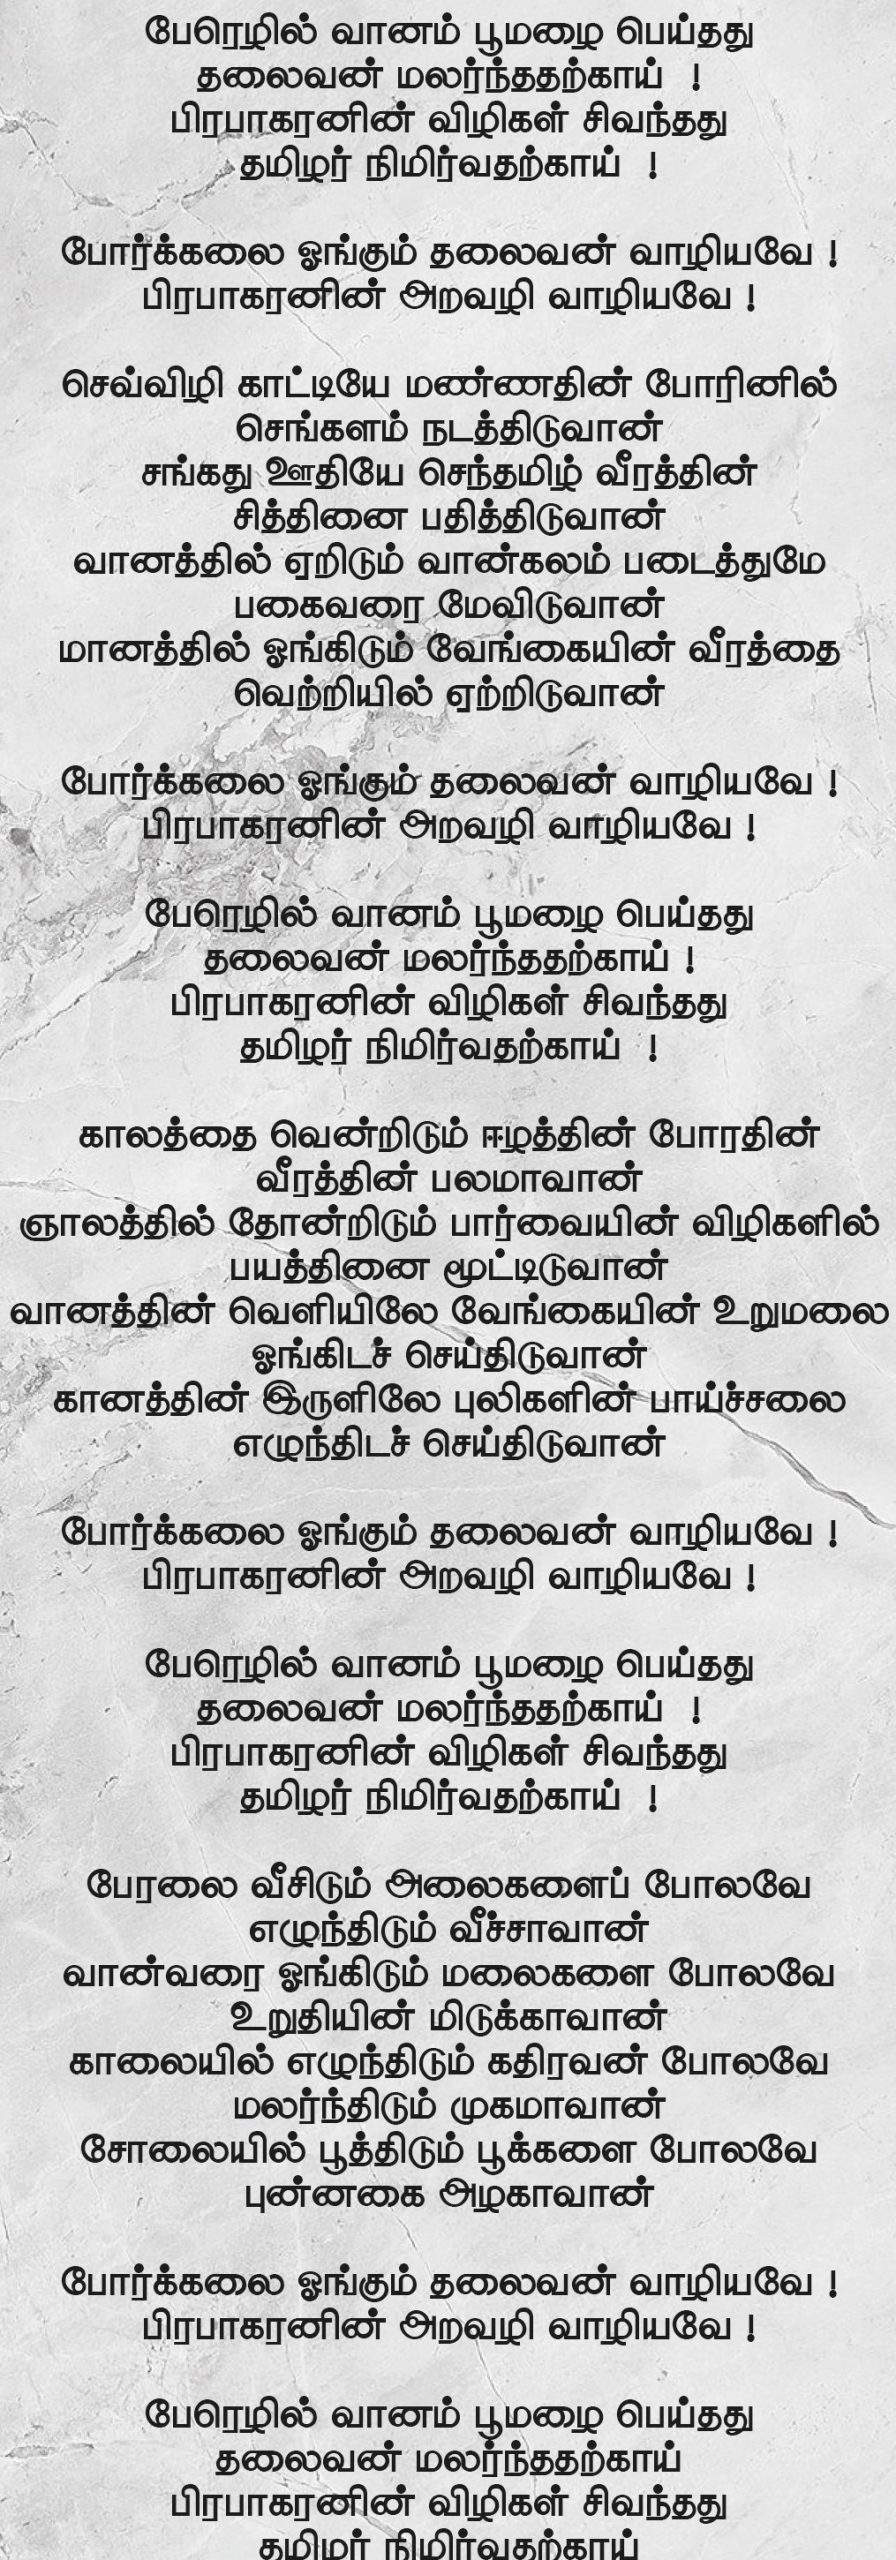 பேரெழில் வானம் பூமழை பெய்தது
தலைவன் மலர்ந்ததற்காய் !
பிரபாகரனின் விழிகள் சிவந்தது
தமிழர் நிமிர்வதற்காய் !
போர்க்கலை ஓங்கும் தலைவன் வாழியவே !
பிரபாகரனின் அறவழி வாழியவே !
செவ்விழி காட்டியே மண்ணதின் போரினில்
செங்களம் நடத்திடுவான்
சங்கது ஊதியே செந்தமிழ் வீரத்தின்
சித்தினை பதித்திடுவான்
வானத்தில் ஏறிடும் வான்கலம் படைத்துமே
பகைவரை மேவிடுவான்
மானத்தில் ஓங்கிடும் வேங்கையின் வீரத்தை
வெற்றியில் ஏற்றிடுவான்
போர்க்கலை ஓங்கும் தலைவன் வாழியவே !
பிரபாகரனின் அறவழி வாழியவே !
பேரெழில் வானம் பூமழை பெய்தது
தலைவன் மலர்ந்ததற்காய் !
பிரபாகரனின் விழிகள் சிவந்தது
தமிழர் நிமிர்வதற்காய் !
காலத்தை வென்றிடும் ஈழத்தின் போரதின்
வீரத்தின் பலமாவான்
ஞாலத்தில் தோன்றிடும் பார்வையின் விழிகளில்
பயத்தினை மூட்டிடுவான்
வானத்தின் வெளியிலே வேங்கையின் உறுமலை
ஓங்கிடச் செய்திடுவான்
கானத்தின் இருளிலே புலிகளின் பாய்ச்சலை
எழுந்திடச் செய்திடுவான்
போர்க்கலை ஓங்கும் தலைவன் வாழியவே !
பிரபாகரனின் அறவழி வாழியவே !
பேரெழில் வானம் பூமழை பெய்தது
தலைவன் மலர்ந்ததற்காய் !
பிரபாகரனின் விழிகள் சிவந்தது
தமிழர் நிமிர்வதற்காய் !
பேரலை வீசிடும் அலைகளைப் போலவே
எழுந்திடும் வீச்சாவான்
வான்வரை ஓங்கிடும் மலைகளை போலவே
உறுதியின் மிடுக்காவான்
காலையில் எழுந்திடும் கதிரவன் போலவே
மலர்ந்திடும் முகமாவான்
சோலையில் பூத்திடும் பூக்களை போலவே
புன்னகை அழகாவான்
போர்க்கலை ஓங்கும் தலைவன் வாழியவே !
பிரபாகரனின் அறவழி வாழியவே !
பேரெழில் வானம் பூமழை பெய்தது
தலைவன் மலர்ந்ததற்காய்
பிரபாகரனின் விழிகள் சிவந்தது
தமிழர் நிமிர்வதற்காய்